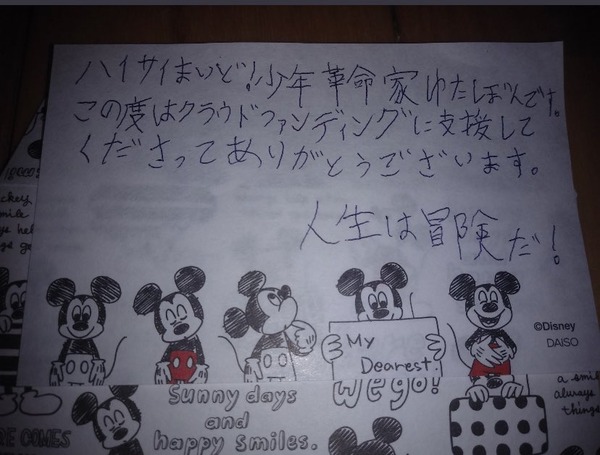 ハイサイまいど!少年革命家ゆたぼんです。
この度はクラウドファンディングに支援して
くださってありがとうございます。
人生は冒険だ!
©Disney
DAISO
My
Dearest.
wego!
Sunny days
and
happy smiles.
a smile
always
things
RE COMES